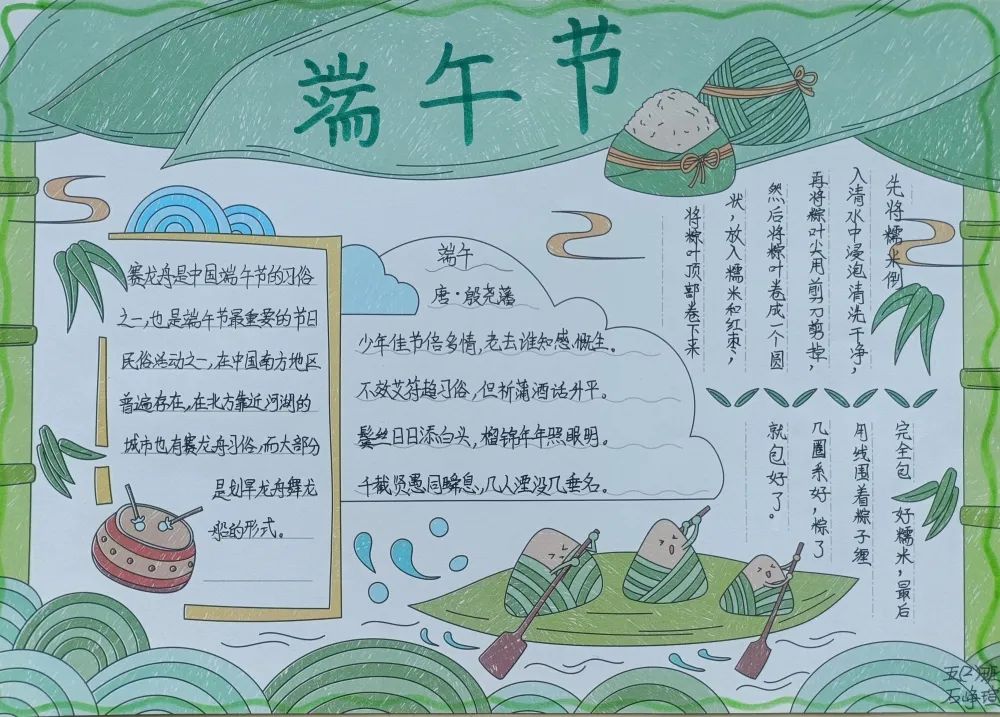 端午节
赛龙舟是中国端午节的习俗
之一,也是端午节最重要的节日
民俗活动之一,在中国南方地区
普遍存在,在北方靠近河湖的
城市也有赛龙舟习俗,而大部分
是划旱龙舟舞龙
船的形式。
端午
唐·殷尧藩
少年佳节倍多情,老去谁知感慨生。
不效艾符趋习俗,但祈蒲酒话升平。
鬓丝日日添白头,榴锦年年照眼明。
千载贤愚同瞬息,几人湮没几垂名。
先将糯米倒
入清水中浸泡清洗干净,
再将粽叶尖用剪刀剪掉,
然后将粽叶卷成一个圆
状,放入糯米和红枣,
将粽叶顶部卷下来
完全包 好糯米,最后
用线围着粽子缠
几圈系好,粽了
就包好了。
五(2)班